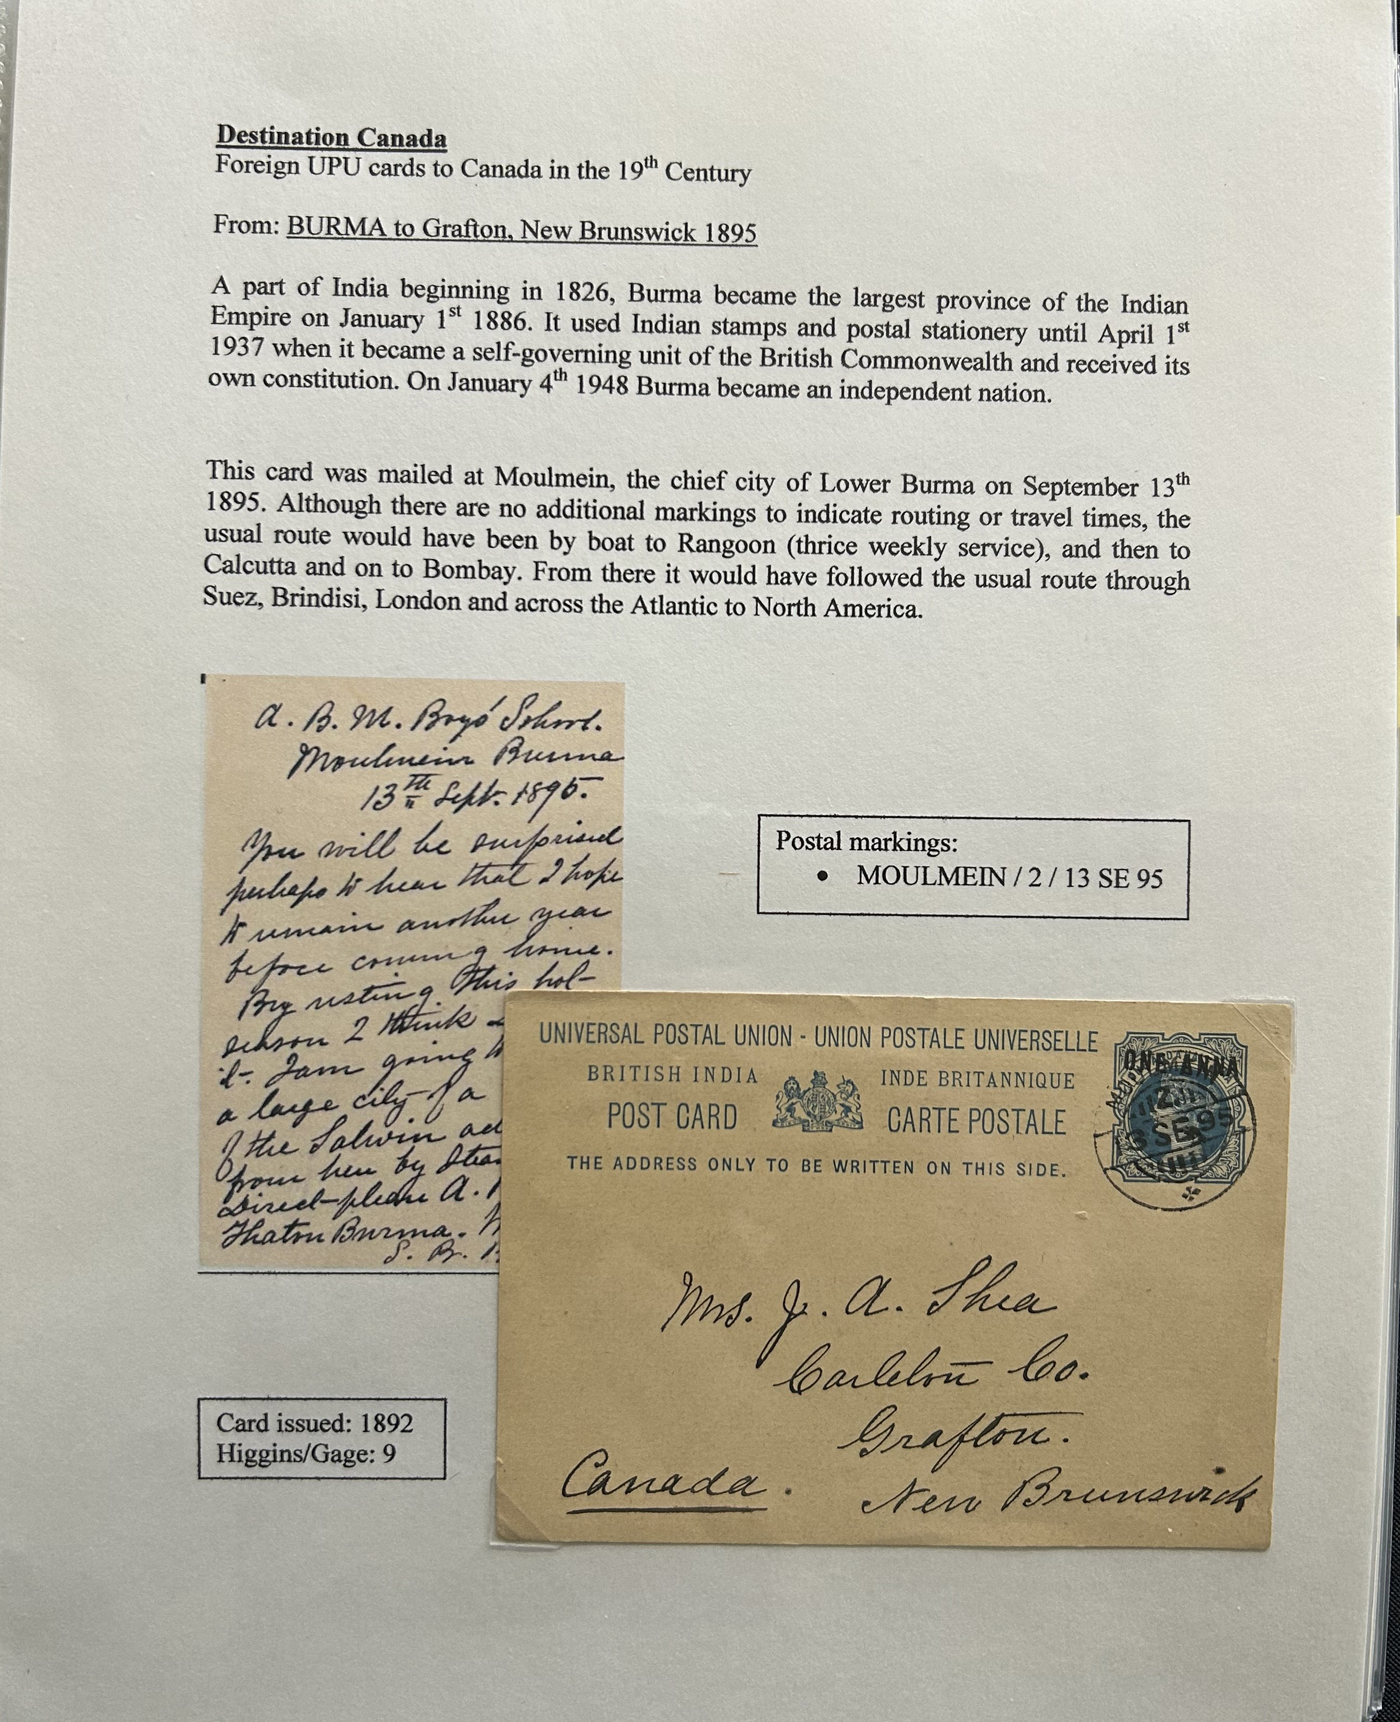 Destination Canada
Foreign UPU cards to Canada in the 19th Century
From: BURMA to Grafton, New Brunswick 1895
A part of India beginning in 1826, Burma became the largest province of the Indian
Empire on January 1st 1886. It used Indian stamps and postal stationery until April 1st
1937 when it became a self-governing unit of the British Commonwealth and received its
own constitution. On January 4th 1948 Burma became an independent nation.
This card was mailed at Moulmein, the chief city of Lower Burma on September 13th
1895. Although there are no additional markings to indicate routing or travel times, the
usual route would have been by boat to Rangoon (thrice weekly service), and then to
Calcutta and on to Bombay. From there it would have followed the usual route through
Suez, Brindisi, London and across the Atlantic to North America.
A. B. M. Boys' School.
Moulmein Burma
13th Sept. 1895.
You will be surprised
perhaps to hear that I hope
to remain another year
before coming home.
By resting this hot
season I think
it. I am going to
a large city of a
of the Salwin
from here by
Direct please A.
Thaton Burma.
S. B.
Postal markings:
• MOULMEIN / 2 / 13 SE 95
UNIVERSAL POSTAL UNION - UNION POSTALE UNIVERSELLE
BRITISH INDIA INDE BRITANNIQUE
POST CARD CARTE POSTALE
THE ADDRESS ONLY TO BE WRITTEN ON THIS SIDE.
ONE ANNA
2
13 SE 95
Mrs. J. A. Shea
Carleton Co.
Grafton.
Canada. New Brunswick
Card issued: 1892
Higgins/Gage: 9